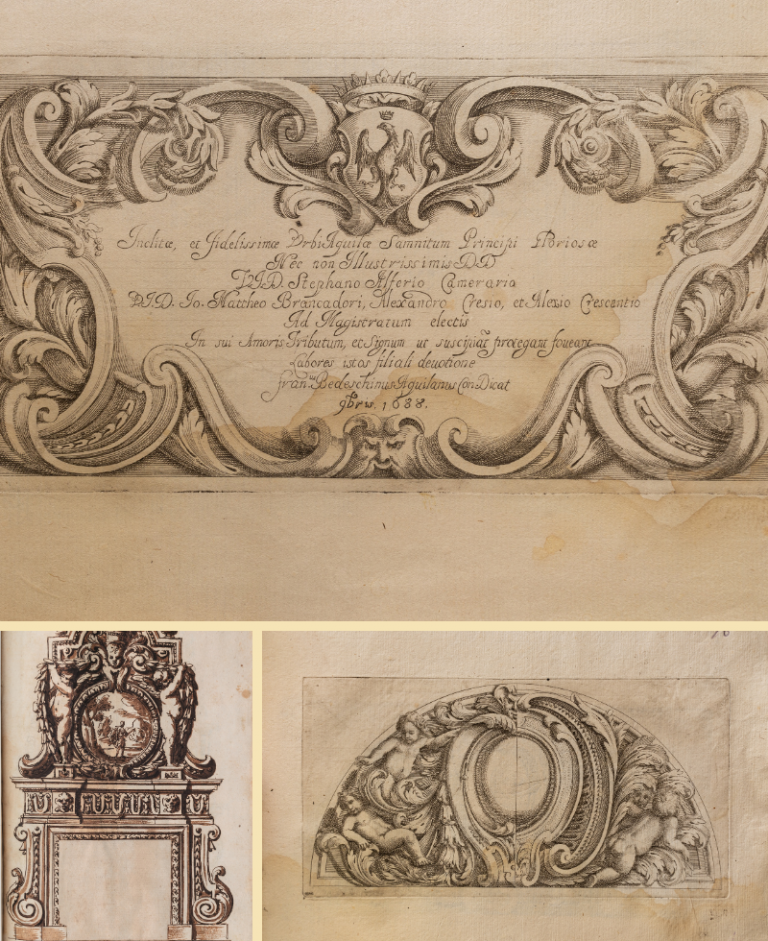 Inclitæ, et fidelissimæ Vrbi Aquilæ Samnitum Principi
Nec non Illustrissimis DD
V.I.D. Stephano Alferio Camerario
V.I.D. Io. Mattheo Brancadori, Alexandro Cresio, et Alexio Crescentio
Ad Magistratum electis
In sui Amoris Tributum, et Signum ut suscipiāt protegant foueant
Labores istos filiali deuotione
fran.us Bedeschinus Aquilanus Con Dicat
9bris. 1688.